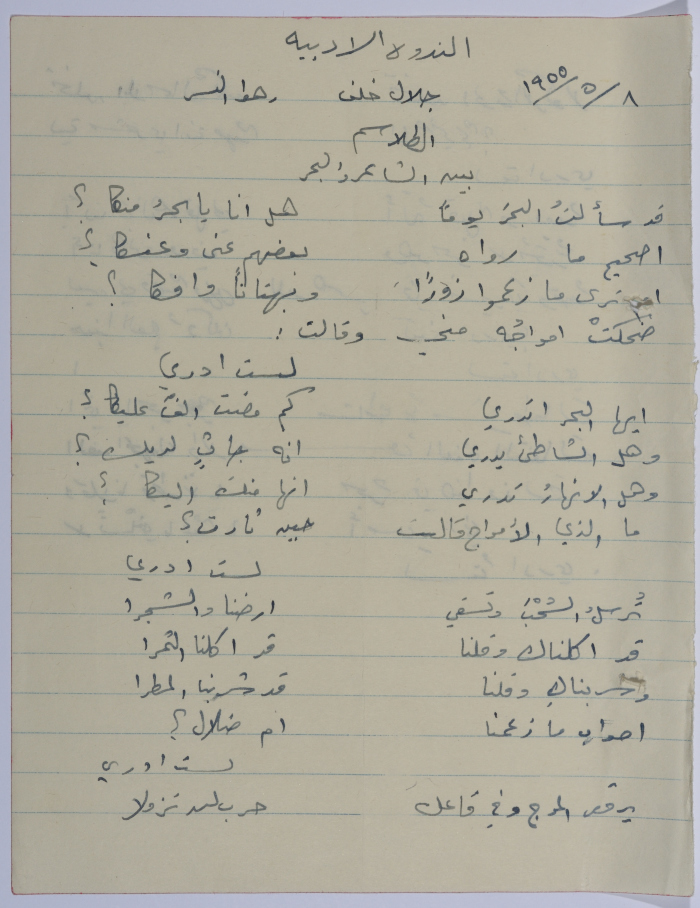 الندوة الادبيه
٨/٥/١٩٥٥ جلال خلف زهوا النسر
الطلاسم
بين الشاعر والبحر
قد سألتُ البحرَ يوماً هل انا يا بحرُ منكا ؟
اصحيح ما رواه بعضهم عني وعنكا ؟
ام ترى ما زعموا زورًا وبهتاناً وافكا ؟
ضحكتْ امواجُه مني وقالت :
لست ادري
ايها البحر اتدري كم مضت الفٌ عليكا ؟
وهل الشاطئ يدري انه جاثٍ لديك ؟
وهل الانهارُ تدري انها منك اليكا ؟
ما الذي الأمواج قالت حين ثارت ؟
لست ادري
تُرسلُ السُحْبَ وتسقي ارضنا والشجرا
قد اكلناك وقلنا قد اكلنا الثمرا
وشربناك وقلنا قد شربنا المطرا
اصواب ما زعمنا ام ضلال ؟
لست ادري
يرقص الموج وفي قاعك حرب لن تزولا